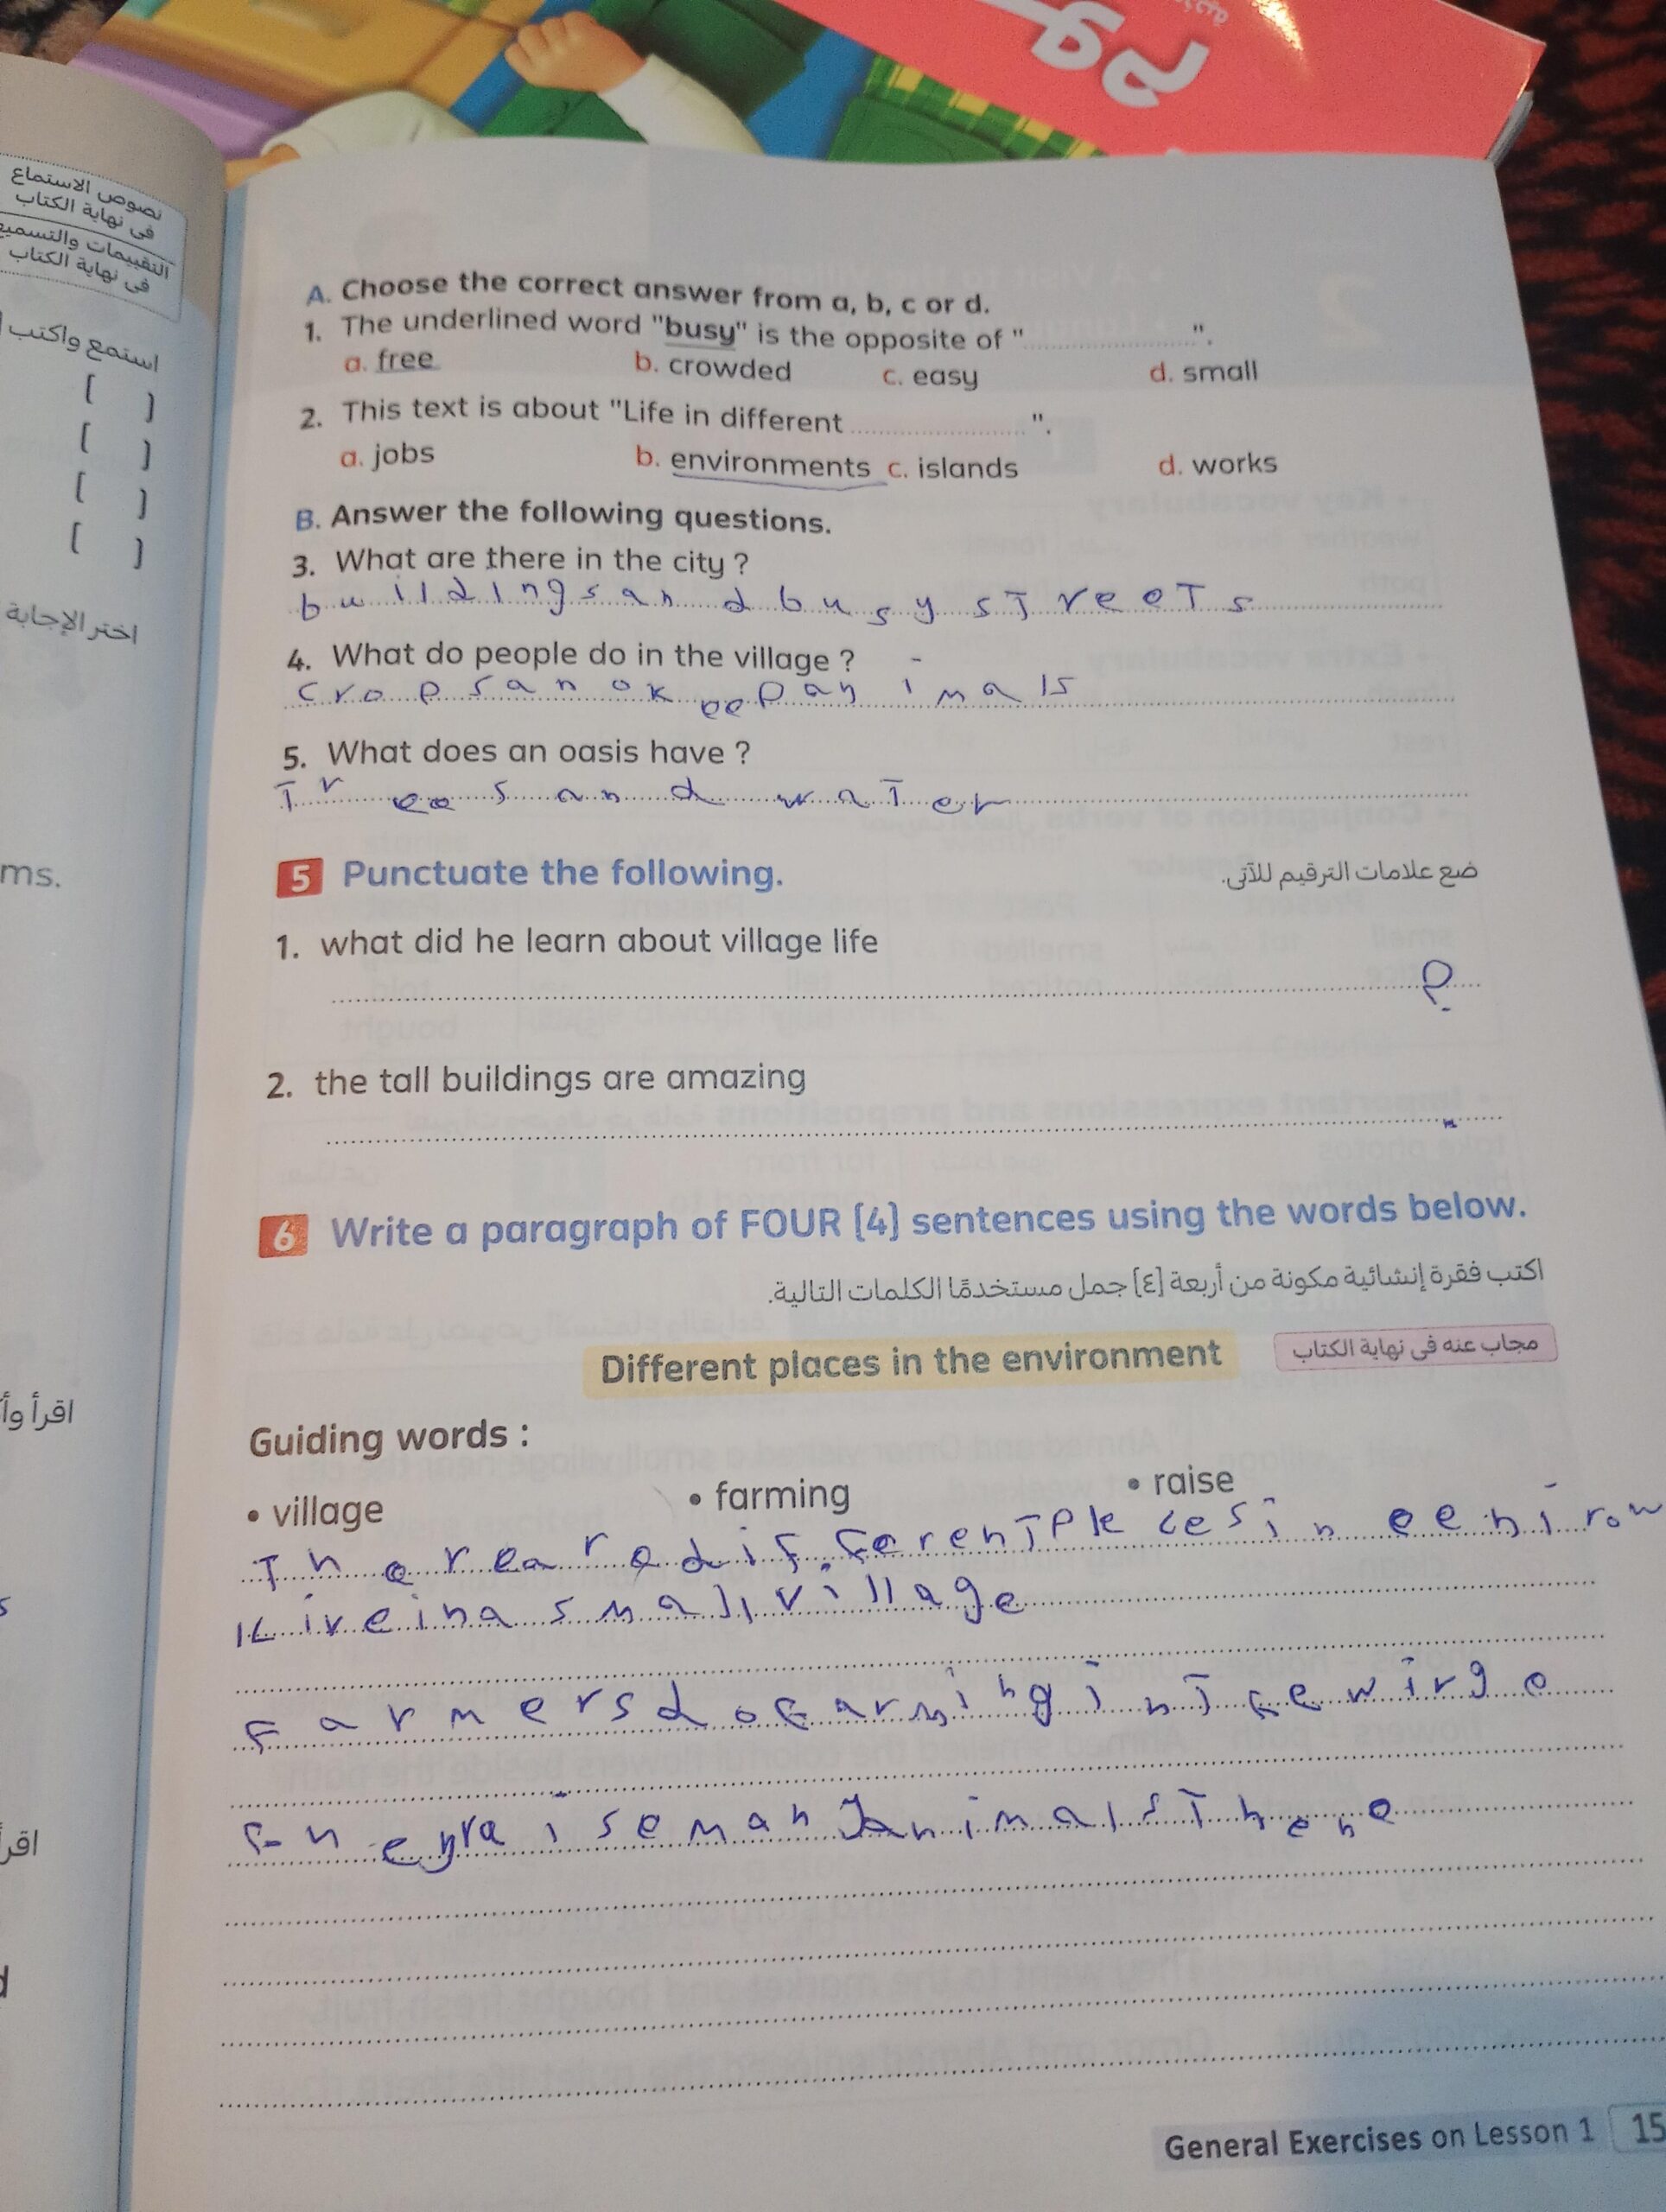 نصوص الاستماع
فى نهاية الكتاب
التقييمات والتسميع
فى نهاية الكتاب
استمع واكتب
[ ]
[ ]
[ ]
[ ]
اختر الإجابة
ms.
اقرأ وأ
A. Choose the correct answer from a, b, c or d.
1. The underlined word "busy" is the opposite of "....................".
a. free b. crowded c. easy d. small
2. This text is about "Life in different ....................".
a. jobs b. environments c. islands d. works
B. Answer the following questions.
3. What are there in the city ?
buildings and busy streets
4. What do people do in the village ?
crops an o keep animals
5. What does an oasis have ?
Trees and water
5 Punctuate the following. ضع علامات الترقيم للآتى.
1. what did he learn about village life
?
2. the tall buildings are amazing
.
6 Write a paragraph of FOUR [4] sentences using the words below.
اكتب فقرة إنشائية مكونة من أربعة [٤] جمل مستخدمًا الكلمات التالية.
Different places in the environment مجاب عنه فى نهاية الكتاب
Guiding words :
• village • farming • raise
in
live in a small village
Farmers do farming in
raise many animals
General Exercises on Lesson 1 15